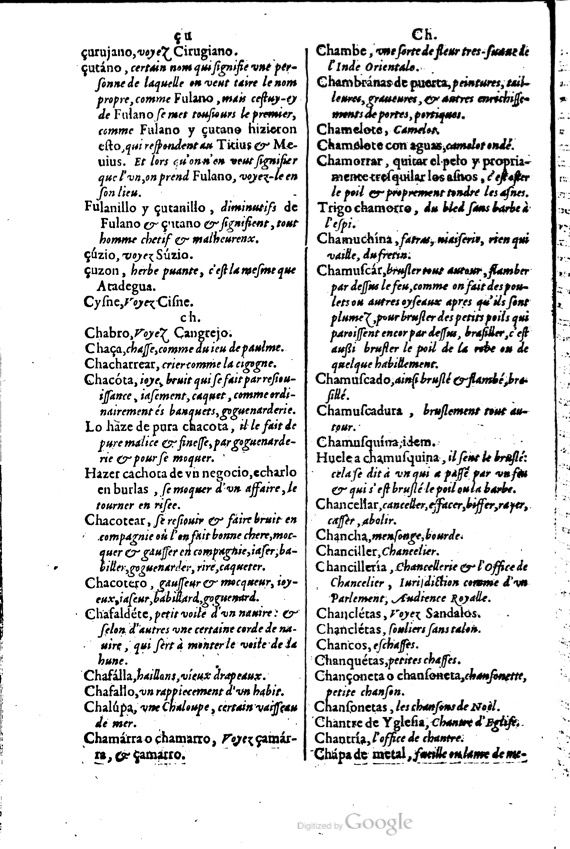 çu
çurujano, voyeʒ Cirugiano.
çutáno, certain nom qui ſignifie vne per-
ſonne de laquelle on veut taire le nom
propre, comme Fulano, mais ceſtuy-cy
de Fulano ſe met touſiours le premier,
comme Fulano y çutano hizieron
eſto, qui reſpondent au Titius & Me-
uius. Et lors qu'on n'en veut ſignifier
que l'vn, on prend Fulano, voyeʒ-le en
ſon lieu.
Fulanillo y çutanillo, diminutifs de
Fulano & çutano & ſignifient, tout
homme chetif & malheureux.
çúzio, voyeʒ Súzio.
çuzon, herbe puante, c'eſt la meſme que
Atadegua.
Cyſne, Voyeʒ Ciſne.
ch.
Chabro, Voyeʒ Cangrejo.
Chaça, chaſſe, comme du ieu de paulme.
Chacharrear, crier comme la cigogne.
Chacóta, ioye, bruit qui ſe fait par reſiou-
iſſance, iaſement, caquet, comme ordi-
nairement és banquets, goguenarderie.
Lo haze de pura chacota, il le fait de
pure malice & fineſſe, par goguenarde-
rie & pour ſe moquer.
Hazer cachota de vn negocio, echarlo
en burlas, ſe moquer d'vn affaire, le
tourner en riſee.
Chacotear, ſe reſiouir & faire bruit en
compagnie où l'on fait bonne chere, moc-
quer & gauſſer en compagnie, iaſer, ba-
biller, goguenarder, rire, caqueter.
Chacotero, gauſſeur & mocqueur, ioy-
eux, iaſeur, babillard, goguenard.
Chafaldéte, petit voile d'vn nauire: &
ſelon d'autres vne certaine corde de na-
uire, qui ſert à monter le voile de la
hune.
Chafálla, haillons, vieux drapeaux.
Chafallo, vn rappiecement d'vn habit.
Chalúpa, vne Chaloupe, certain vaiſſeau
de mer.
Chamárra o chamarro, Voyeʒ çamár-
ra, & çamarro.
Ch.
Chambe, vne ſorte de fleur tres-ſuaue de
l'Inde Orientale.
Chambránas de puerta, peintures, tail-
leures, graueures, & autres enrichiſſe-
ments de portes, portiques.
Chamelote, Camelot.
Chamelote con aguas, camelot ondé.
Chamorrar, quitar el pelo y propria-
mente treſquilar los aſnos, c'eſt oſter
le poil & proprement tondre les aſnes.
Trigo chamorro, du bled ſans barbe à
l'eſpi.
Chamuchina, fatras, niaiſerie, rien qui
vaille, du fretin.
Chamuſcár, bruſler tout autour, flamber
par deſſus le feu, comme on fait des pou-
lets ou autres oyſeaux apres qu'ils ſont
plumeʒ, pour bruſler des petits poils qui
paroiſſent encor par deſſus, braſiller, c'eſt
auſſi bruſler le poil de la robe ou de
quelque habillement.
Chamuſcado, ainſi bruſlé & flambé, bra-
ſillé.
Chamuſcadura, bruſlement tout au-
tour.
Chamuſquína, idem.
Huele a chamuſquina, il ſent le bruſlé:
cela ſe dit à vn qui a paſſé par vn feu
& qui s'eſt bruſlé le poil ou la barbe.
Chancellar, canceller, effacer, biffer, rayer,
caſſer, abolir.
Cháncha, menſonge, bourde.
Chanciller, Chancelier.
Chancilleria, Chancellerie & l'Office de
Chancelier, Iuriſdiction comme d'vn
Parlement, Audience Royalle.
Chanclétas, Voyeʒ Sandalos.
Chanclétas, ſouliers ſans talon.
Chancos, eſchaſſes.
Chanquétas, petites chaſſes.
Chançoneta o chanſoneta, chanſonette,
petite chanſon.
Chanſonetas, les chanſons de Noël.
Chantre de Ygleſia, Chantre d'Egliſe.
Chantría, l'office de chantre.
Chápa de metal, fueille ou lame de me-
Digitized by Google